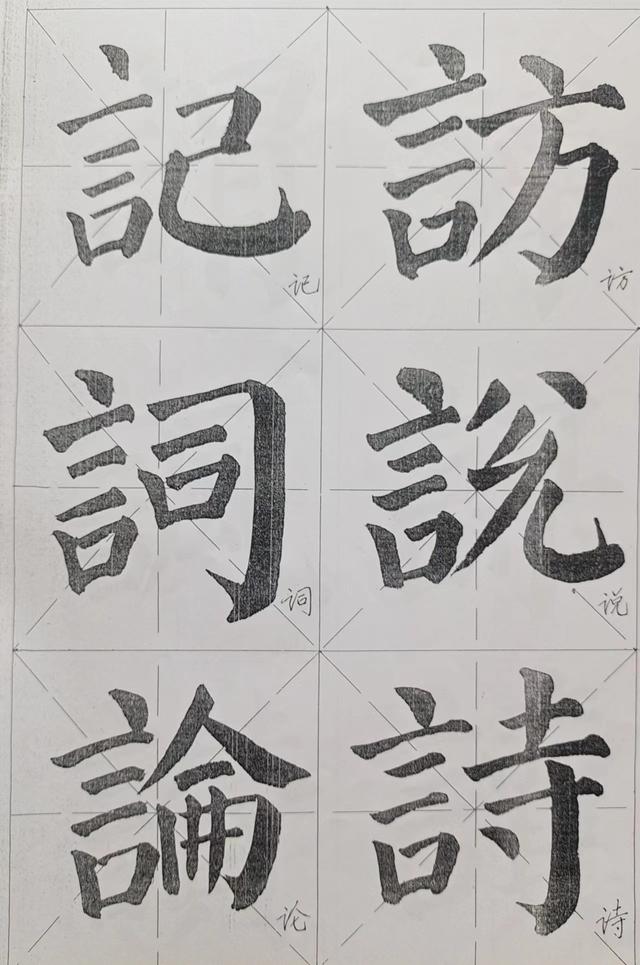 記 訪
记 访
詞 說
词 说
論 詩
论 诗